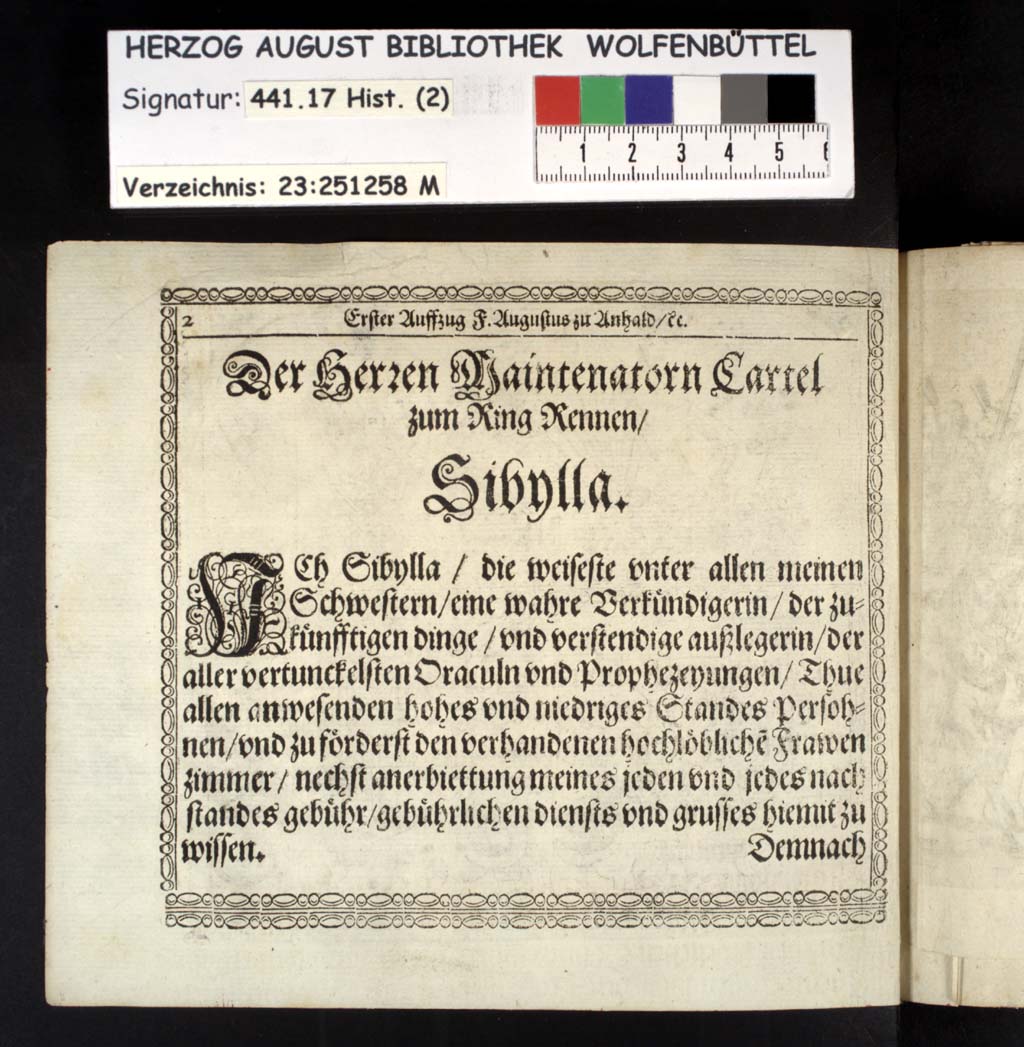 HERZOG AUGUST BIBLIOTHEK WOLFENBÜTTEL
Signatur: 441.17 Hist. (2)
1 2 3 4 5 6
Verzeichnis: 23:251258 M
2 Erster Auffzug F. Augustus zu Anhald/ꝛc.
Der Herꝛen Maintenatorn Cartel
zum Ring Rennen/
Sibylla.
ICh Sibylla / die weiseste vnter allen meinen
Schwestern/eine wahre Verkündigerin/ der zu-
künfftigen dinge / vnd verstendige außlegerin/der
aller vertunckelsten Oraculn vnd Prophezeyungen/ Thue
allen anwesenden hohes vnd niedriges Standes Persoh-
nen/vnd zu förderst den verhandenen hochlöblichẽ Frawen
zimmer/ nechst anerbiettung meines jeden vnd jedes nach
standes gebühr/gebührlichen diensts vnd grusses hiemit zu
wissen. Demnach